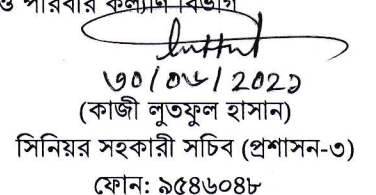 ও পরিবার কল্যাণ বিভাগ
৩০/০৮/2022
(কাজী লুতফুল হাসান)
সিনিয়র সহকারী সচিব (প্রশাসন-৩)
ফোন: ৯৫৪৬০৪৮